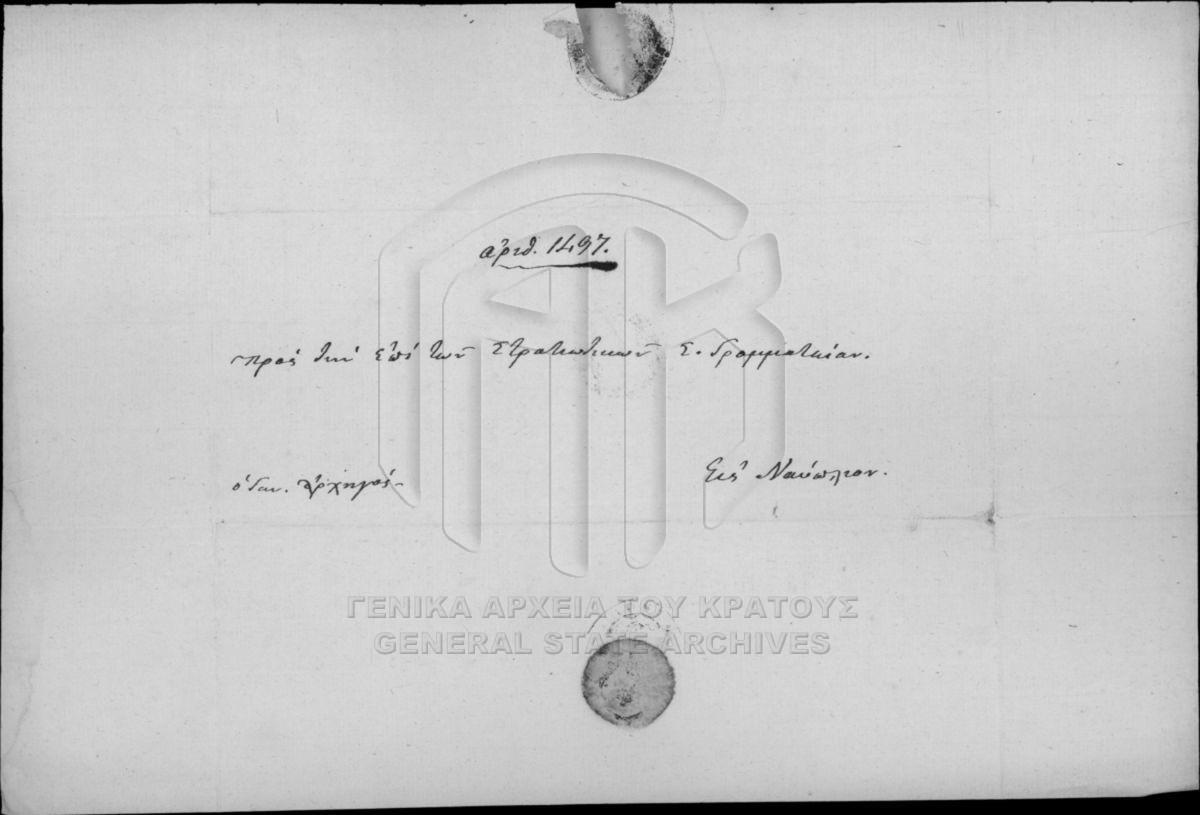 ἀριθ. 1497.
πρὸς τὴν ἐπὶ τῶν Στρατιωτικῶν Σ. Γραμματείαν.
ὁ Γεν. Ἀρχηγὸς
Εἰς Ναύπλιον.
ΓΕΝΙΚΑ ΑΡΧΕΙΑ ΤΟΥ ΚΡΑΤΟΥΣ
GENERAL STATE ARCHIVES